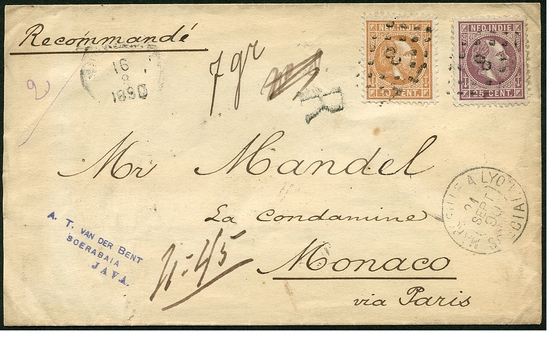 Recommandé
16
8
1890
7 gr
R
NED. INDIE
CENT
NED. INDIE
25 CENT.
Mr Mandel
La Condamine
Monaco
via Paris
A. T. VAN DER BENT
SOERABAIA
JAVA.
MARSEILLE A LYON
24
SEPT
90